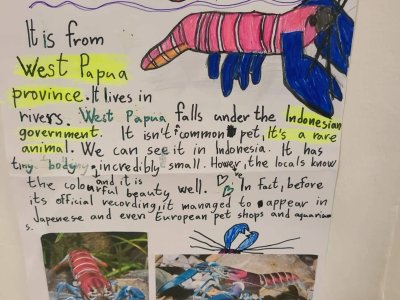 It is from
West Papua
province. It lives in
rivers. West Papua falls under the Indonesian
government. It isn't common pet, It's a rare
animal. We can see it in Indonesia. It has
tiny body, incredibly small. Hower, the locals know
and it is
the colourful beauty well. In fact, before
its official recording, it managed to appear in
Japenese and even European pet shops and aquarium
s.